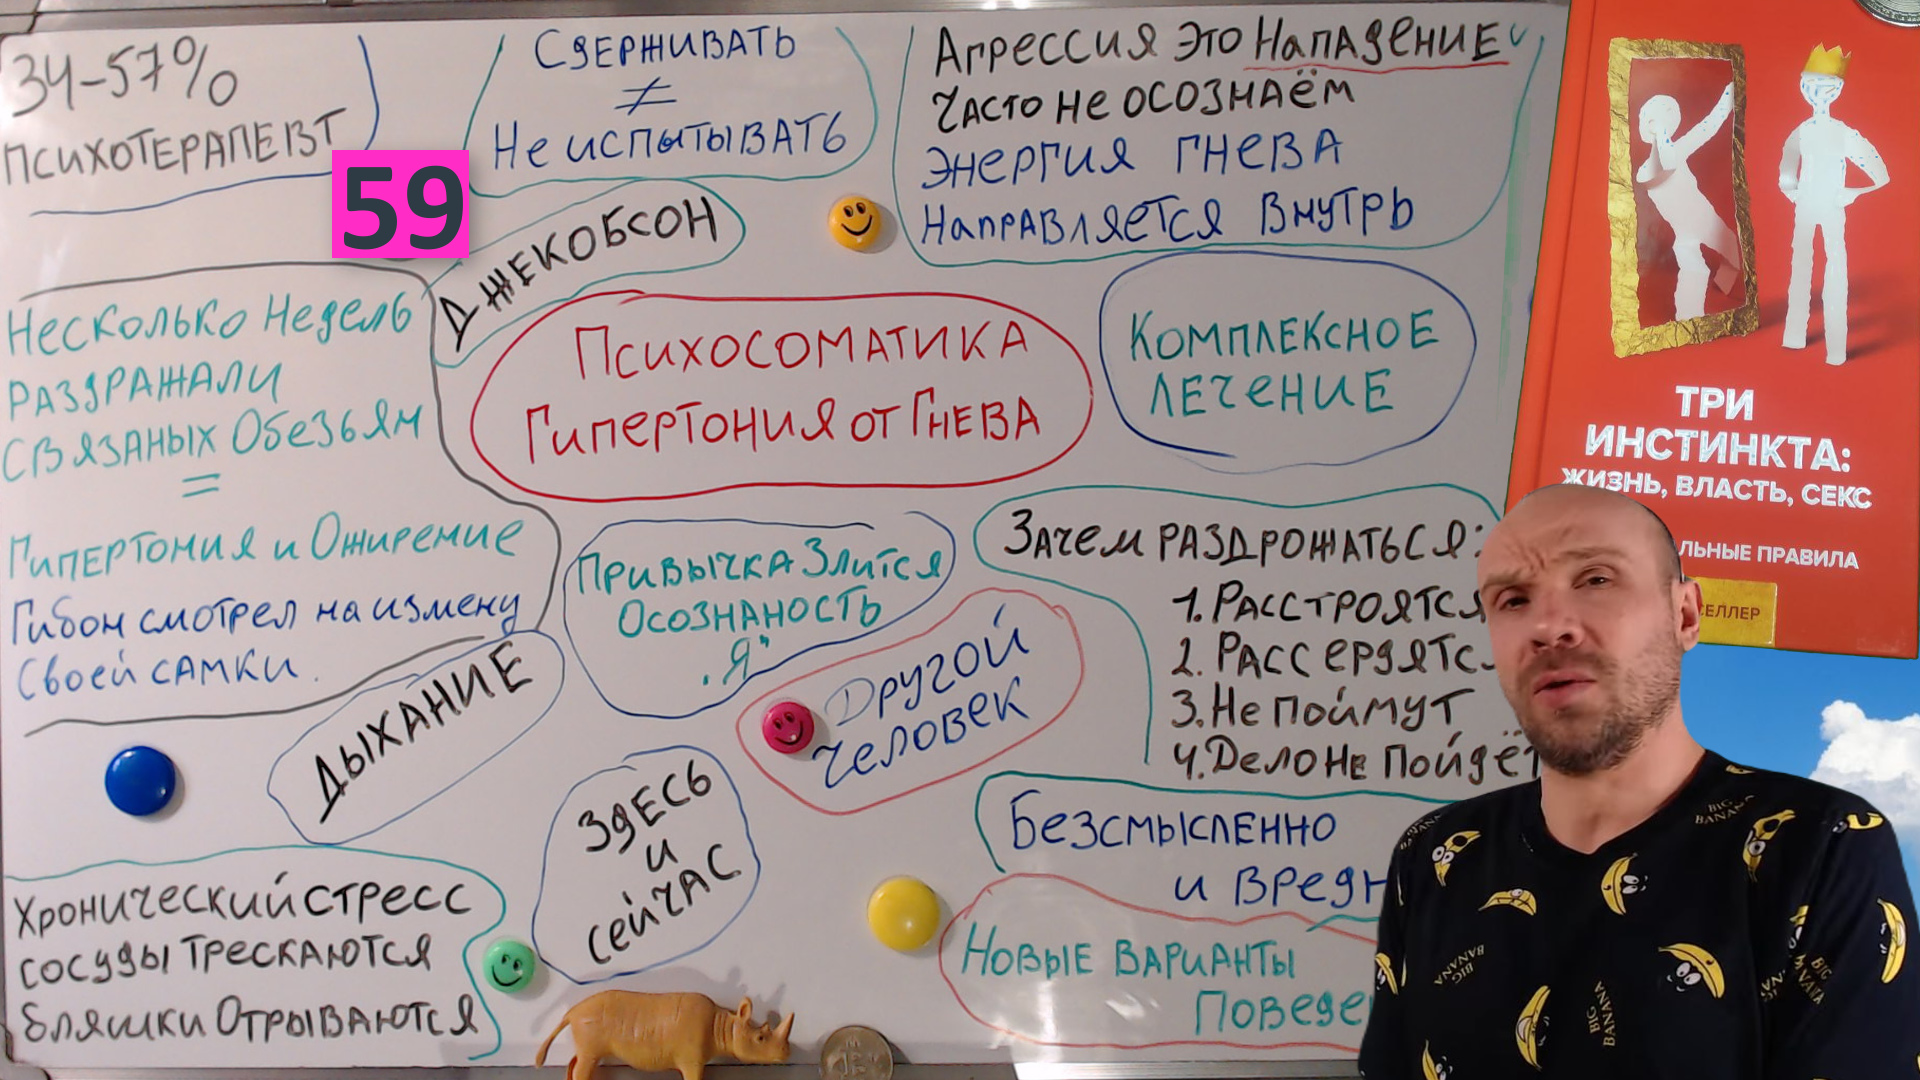 34-57%
ПСИХОТЕРАПЕВТ
59
СДЕРЖИВАТЬ
≠
НЕ ИСПЫТЫВАТЬ
АГРЕССИЯ ЭТО НАПАДЕНИЕ
ЧАСТО НЕ ОСОЗНАЁМ
ЭНЕРГИЯ ГНЕВА
НАПРАВЛЯЕТСЯ ВНУТРЬ
ДЖЕКОБСОН
НЕСКОЛЬКО НЕДЕЛЬ
РАЗДРАЖАЛИ
СВЯЗАНЫХ ОБЕЗЬЯН
=
ГИПЕРТОНИЯ И ОЖИРЕНИЕ
ГИБОН СМОТРЕЛ НА ИЗМЕНУ
СВОЕЙ САМКИ.
ПСИХОСОМАТИКА
ГИПЕРТОНИЯ ОТ ГНЕВА
КОМПЛЕКСНОЕ
ЛЕЧЕНИЕ
ПРИВЫЧКА ЗЛИТСЯ
ОСОЗНАНОСТЬ
"Я"
ЗАЧЕМ РАЗДРОЖАТЬСЯ:
1. РАССТРОЯТСЯ
2. РАССЕРДЯТС
3. НЕ ПОЙМУТ
4. ДЕЛО НЕ ПОЙДЁТ
ДРУГОЙ
ЧЕЛОВЕК
ДЫХАНИЕ
ЗДЕСЬ
И
СЕЙЧАС
БЕЗСМЫСЛЕННО
И ВРЕДН
НОВЫЕ ВАРИАНТЫ
ПОВЕДЕ
ХРОНИЧЕСКИЙ СТРЕСС
СОСУДЫ ТРЕСКАЮТСЯ
БЛЯШКИ ОТРЫВАЮТСЯ
ТРИ
ИНСТИНКТА:
ЖИЗНЬ, ВЛАСТЬ, СЕКС
ЛЬНЫЕ ПРАВИЛА
СЕЛЛЕР
BIG
BANANA
BIG
BANANA
BIG
BANANA
BIG
BANANA